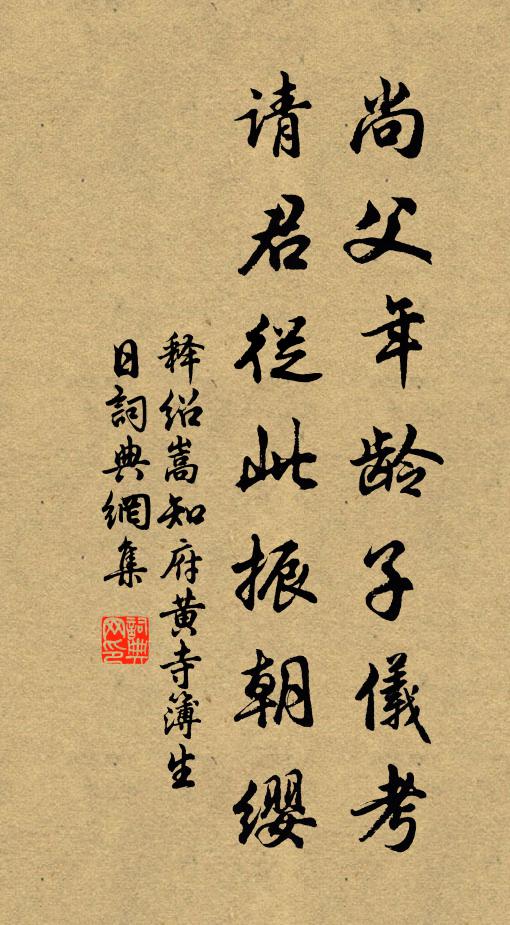 尚父年龄子儀考
请君従此振朝缨
释绍嵩知府黄寺簿生
日詞典網集
詞典网印